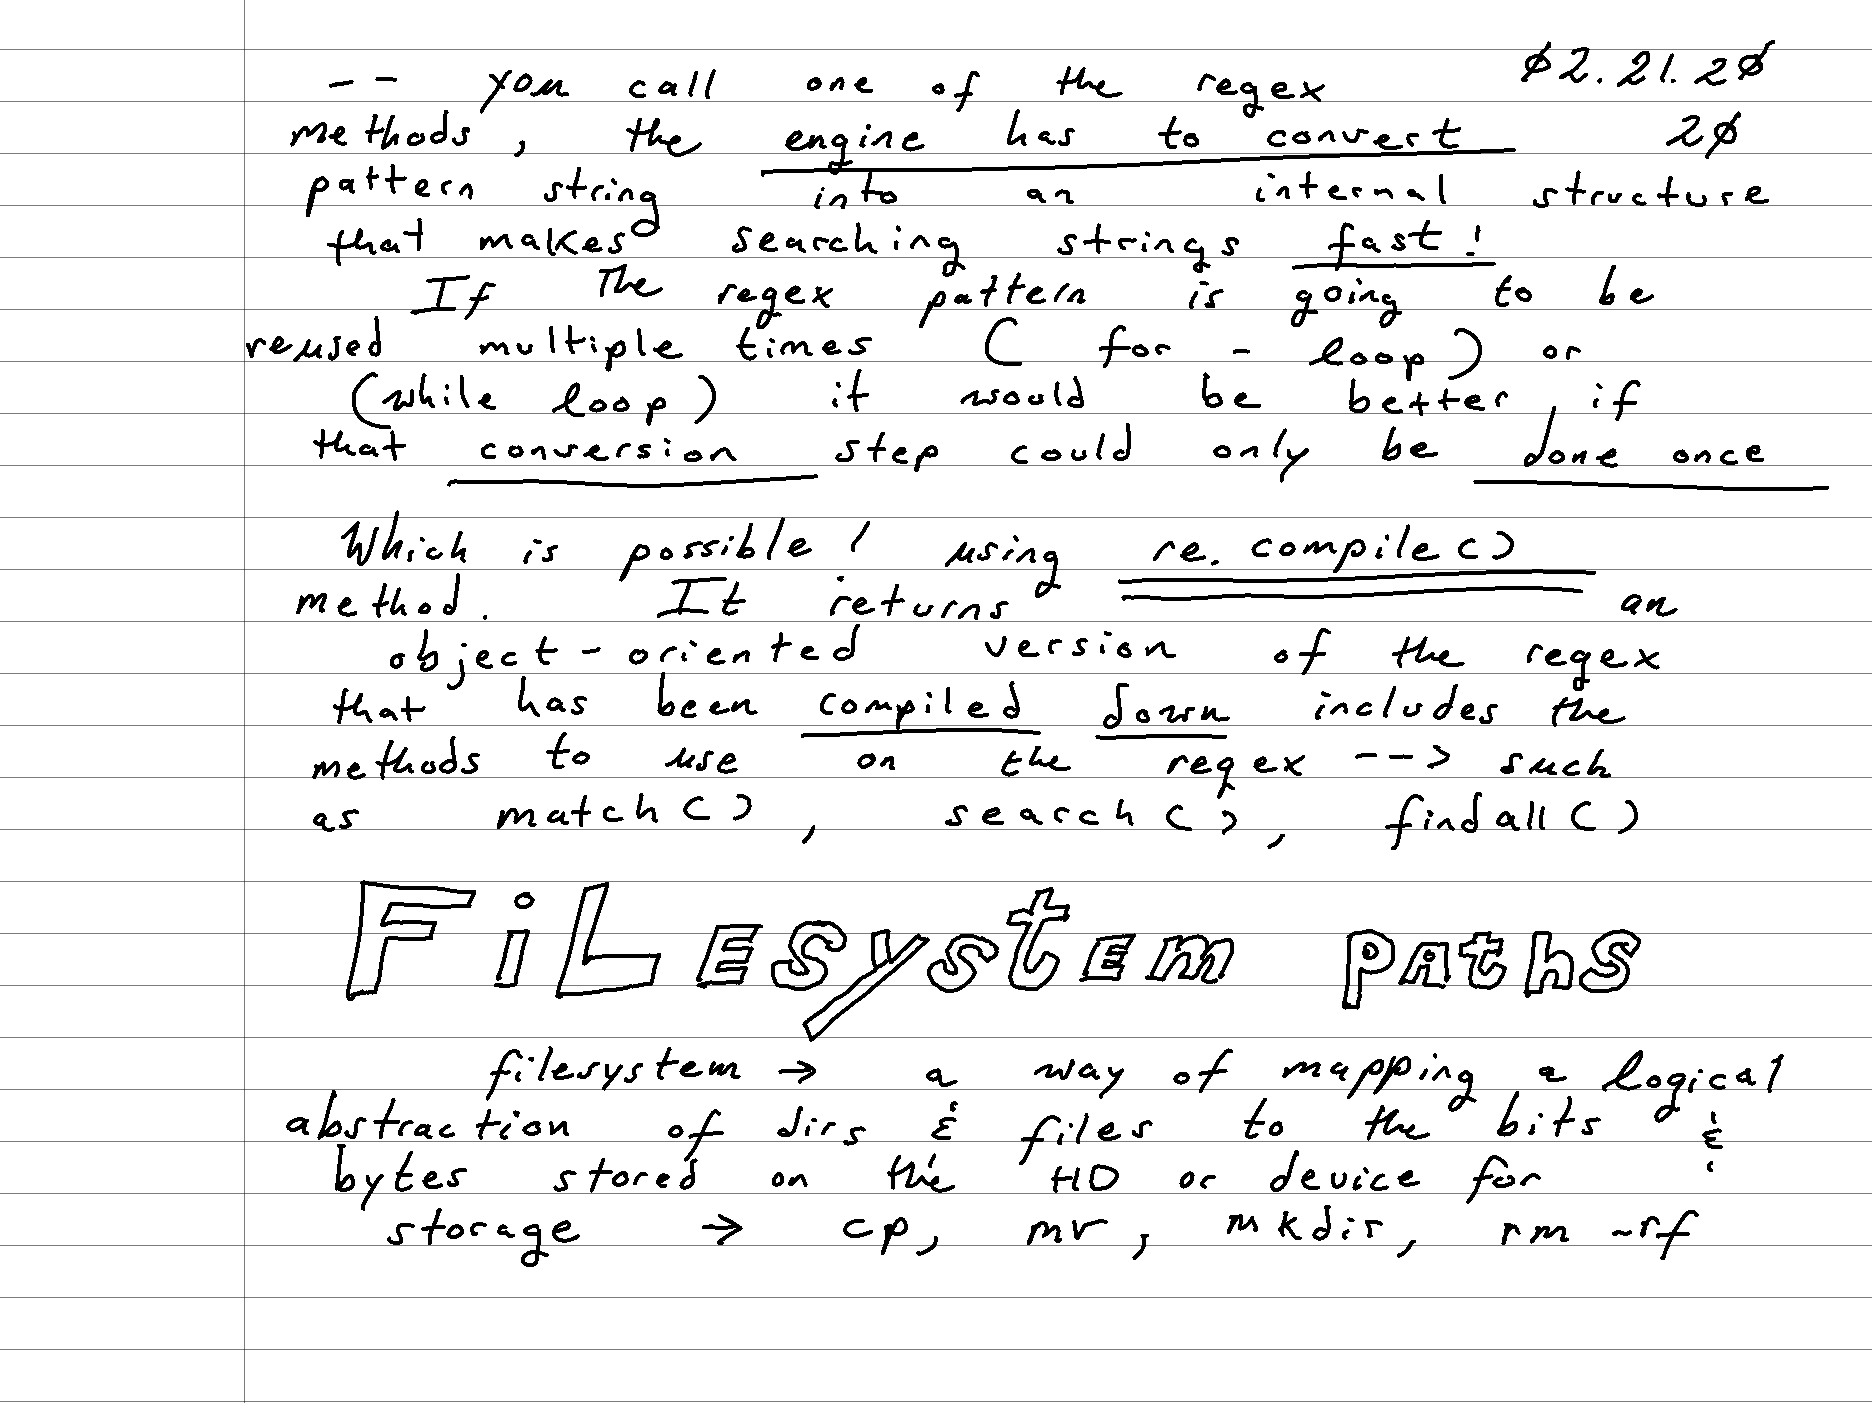 -- you call one of the regex 02.21.20
methods, the engine has to convert 20
pattern string into an internal structure
that makes searching strings fast!
If The regex pattern is going to be
reused multiple times ( for - loop) or
(while loop) it would be better, if
that conversion step could only be done once
Which is possible! using re.compile()
method. It returns an
object-oriented version of the regex
that has been compiled down includes the
methods to use on the regex --> such
as match(), search(), findall()
FiLESystEm paths
filesystem → a way of mapping a logical
abstraction of dirs & files to the bits &
bytes stored on the HD or device for
storage → cp, mv, mkdir, rm -rf